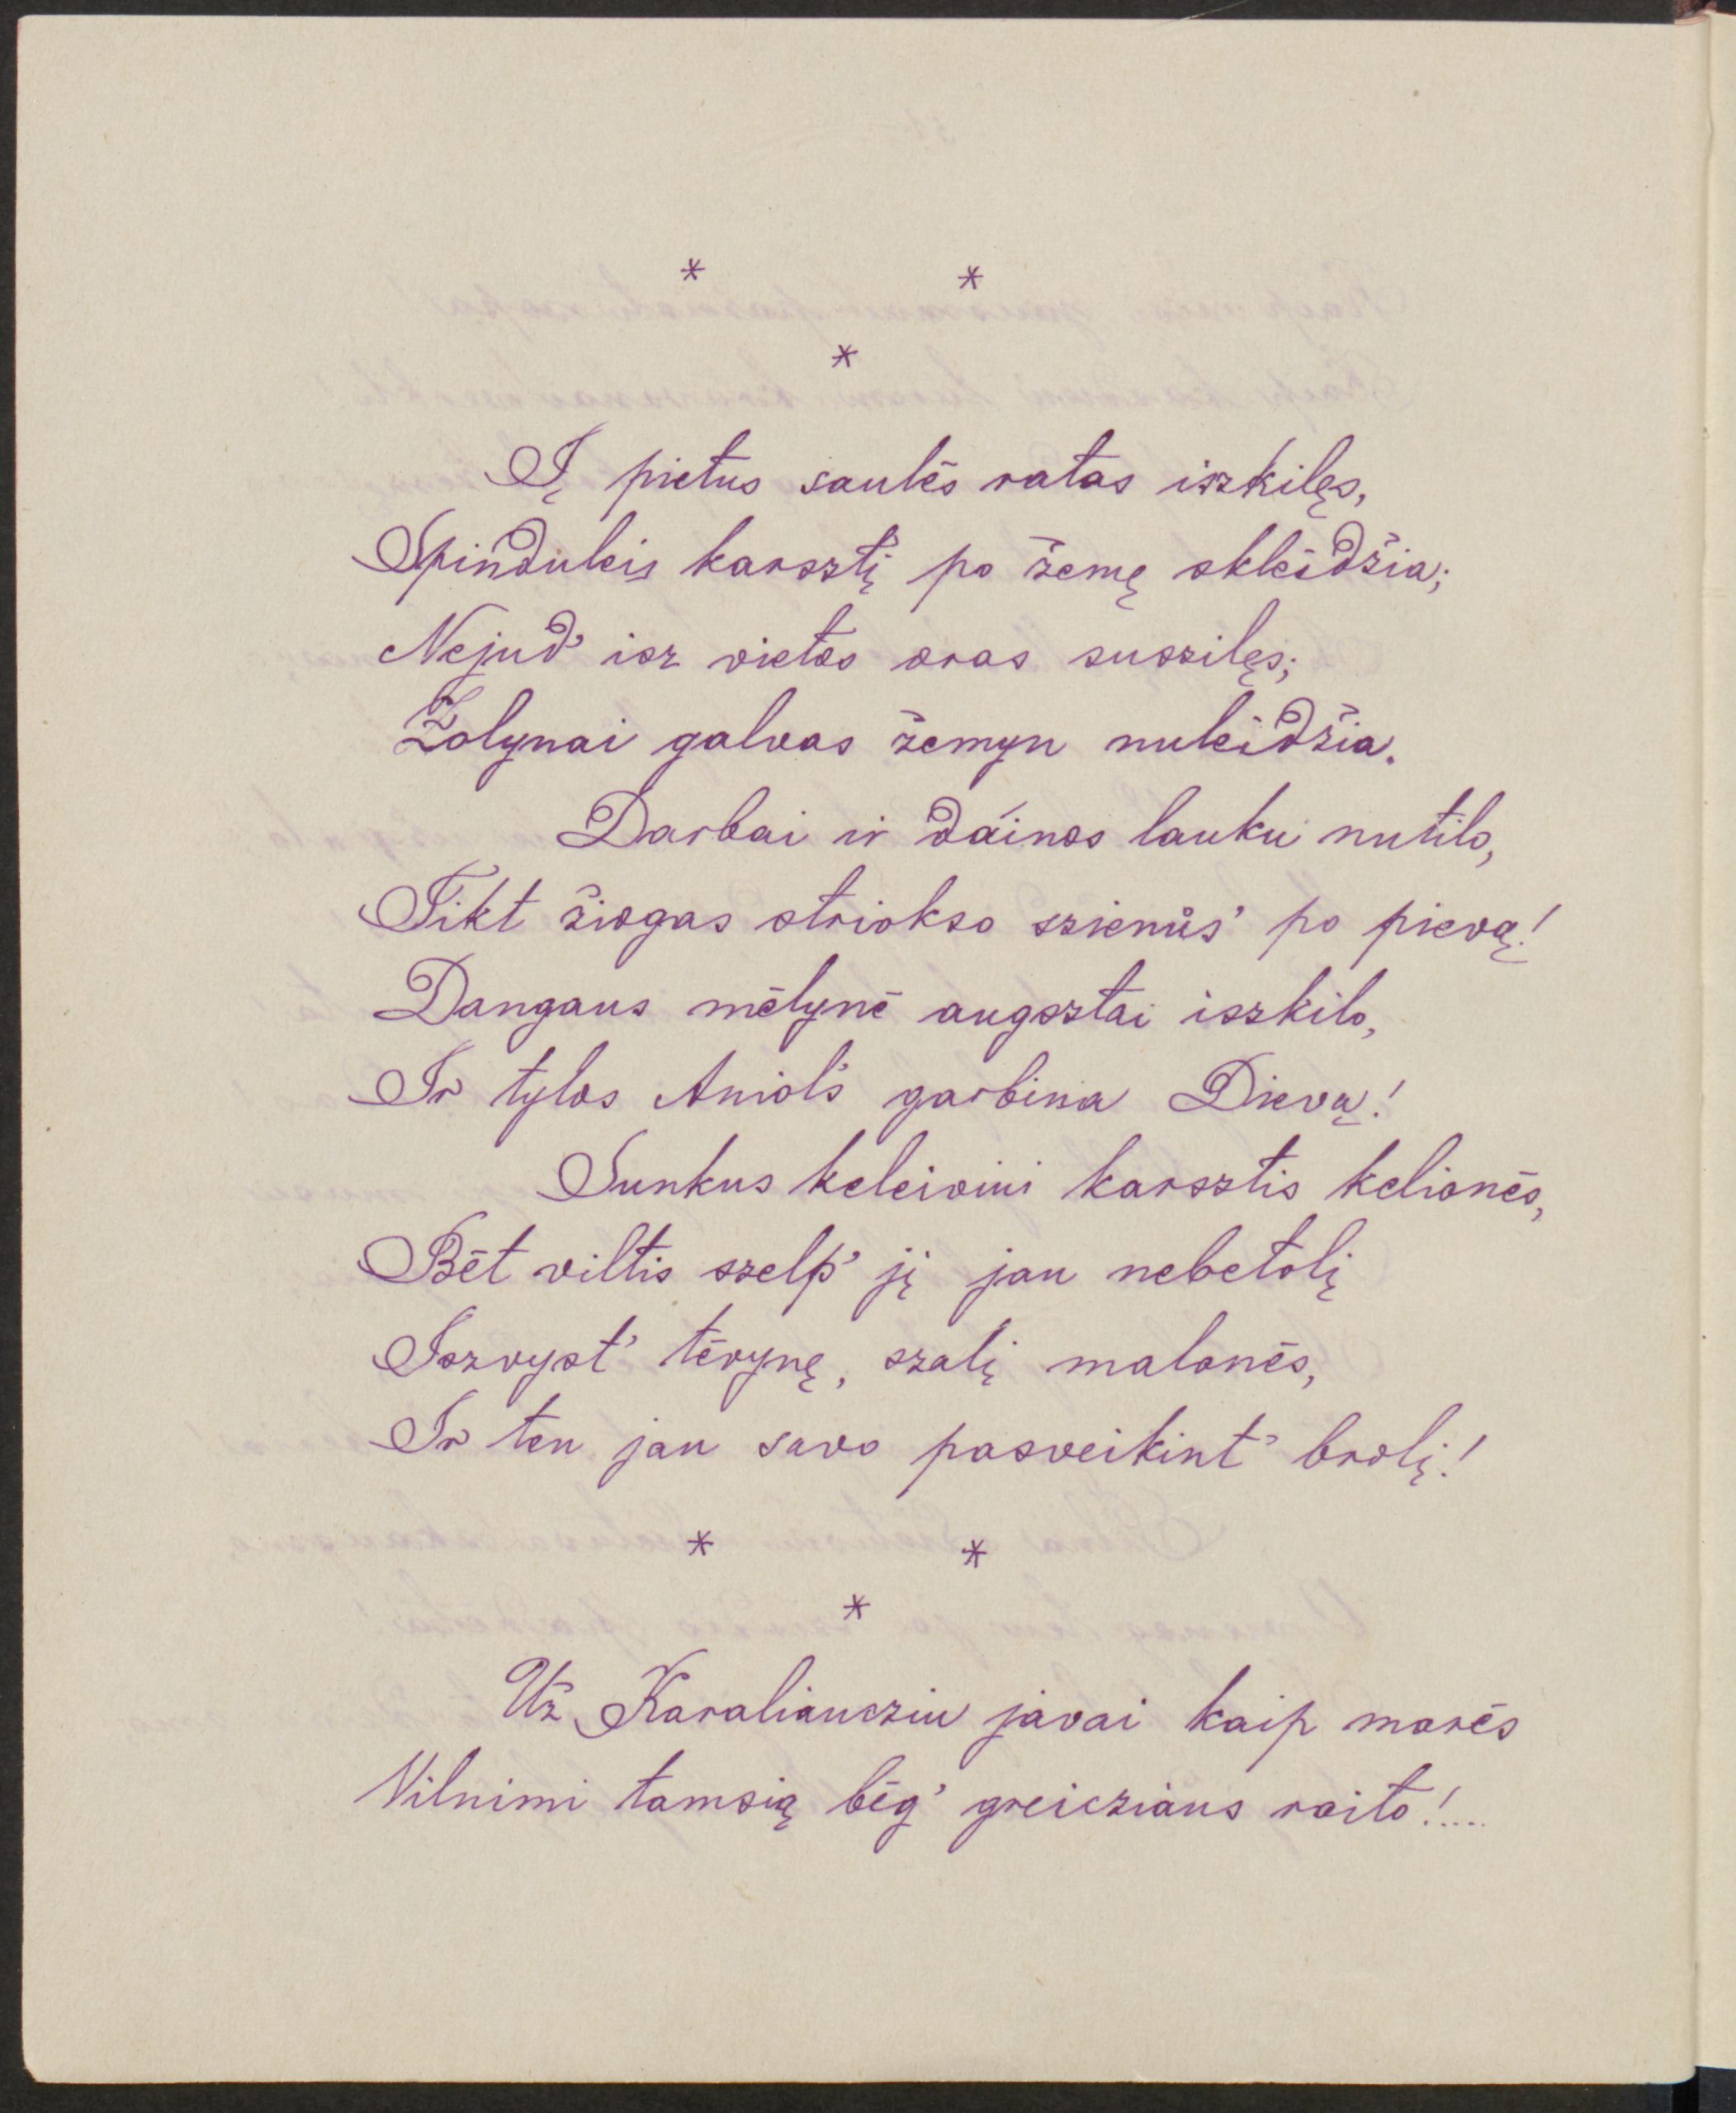 * *
*
Į pietus saulės ratas iszkilęs,
Spinduleis karsztį po žemę skleidžia;
Nejud' isz vietos oras suszilęs;
Žolynai galvas žemyn nuleidžia.
Darbai ir dainos lauku nutilo,
Tikt žiogas striokso szienůs' po pievą!
Dangaus mėlynė augsztai iszkilo,
Ir tylos Aniols garbina Dievą!
Sunkus keleiviui karsztis kelionės,
Bėt viltis szelp' jį jau nebetolį
Iszvyst' tėvynę, szalį malonės,
Ir ten jau savo pasveikint' brolį!
* *
*
Už Karaliaucziu javai kaip marės
Vilnimi tamsią bėg' greicziaus raito!....